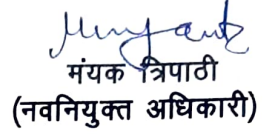 मंयक त्रिपाठी
(नवनियुक्त अधिकारी)